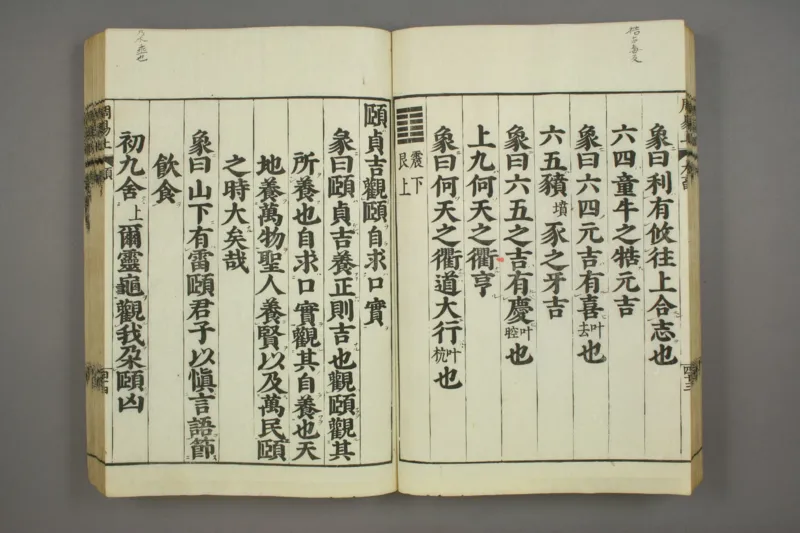 象曰利有攸往上合志也
六四童牛之牿元吉
象曰六四元吉有喜叶去也
六五豶墳豕之牙吉
象曰六五之吉有慶叶腔也
上九何天之衢亨
象曰何天之衢道大行叶杭也
震下艮上
頤貞吉觀頤自求口實
彖曰頤貞吉養正則吉也觀頤觀其
所養也自求口實觀其自養也天
地養萬物聖人養賢以及萬民頤
之時大矣哉
象曰山下有雷頤君子以愼言語節
飮食
初九舍上爾靈龜觀我朶頤凶
周易上 頤